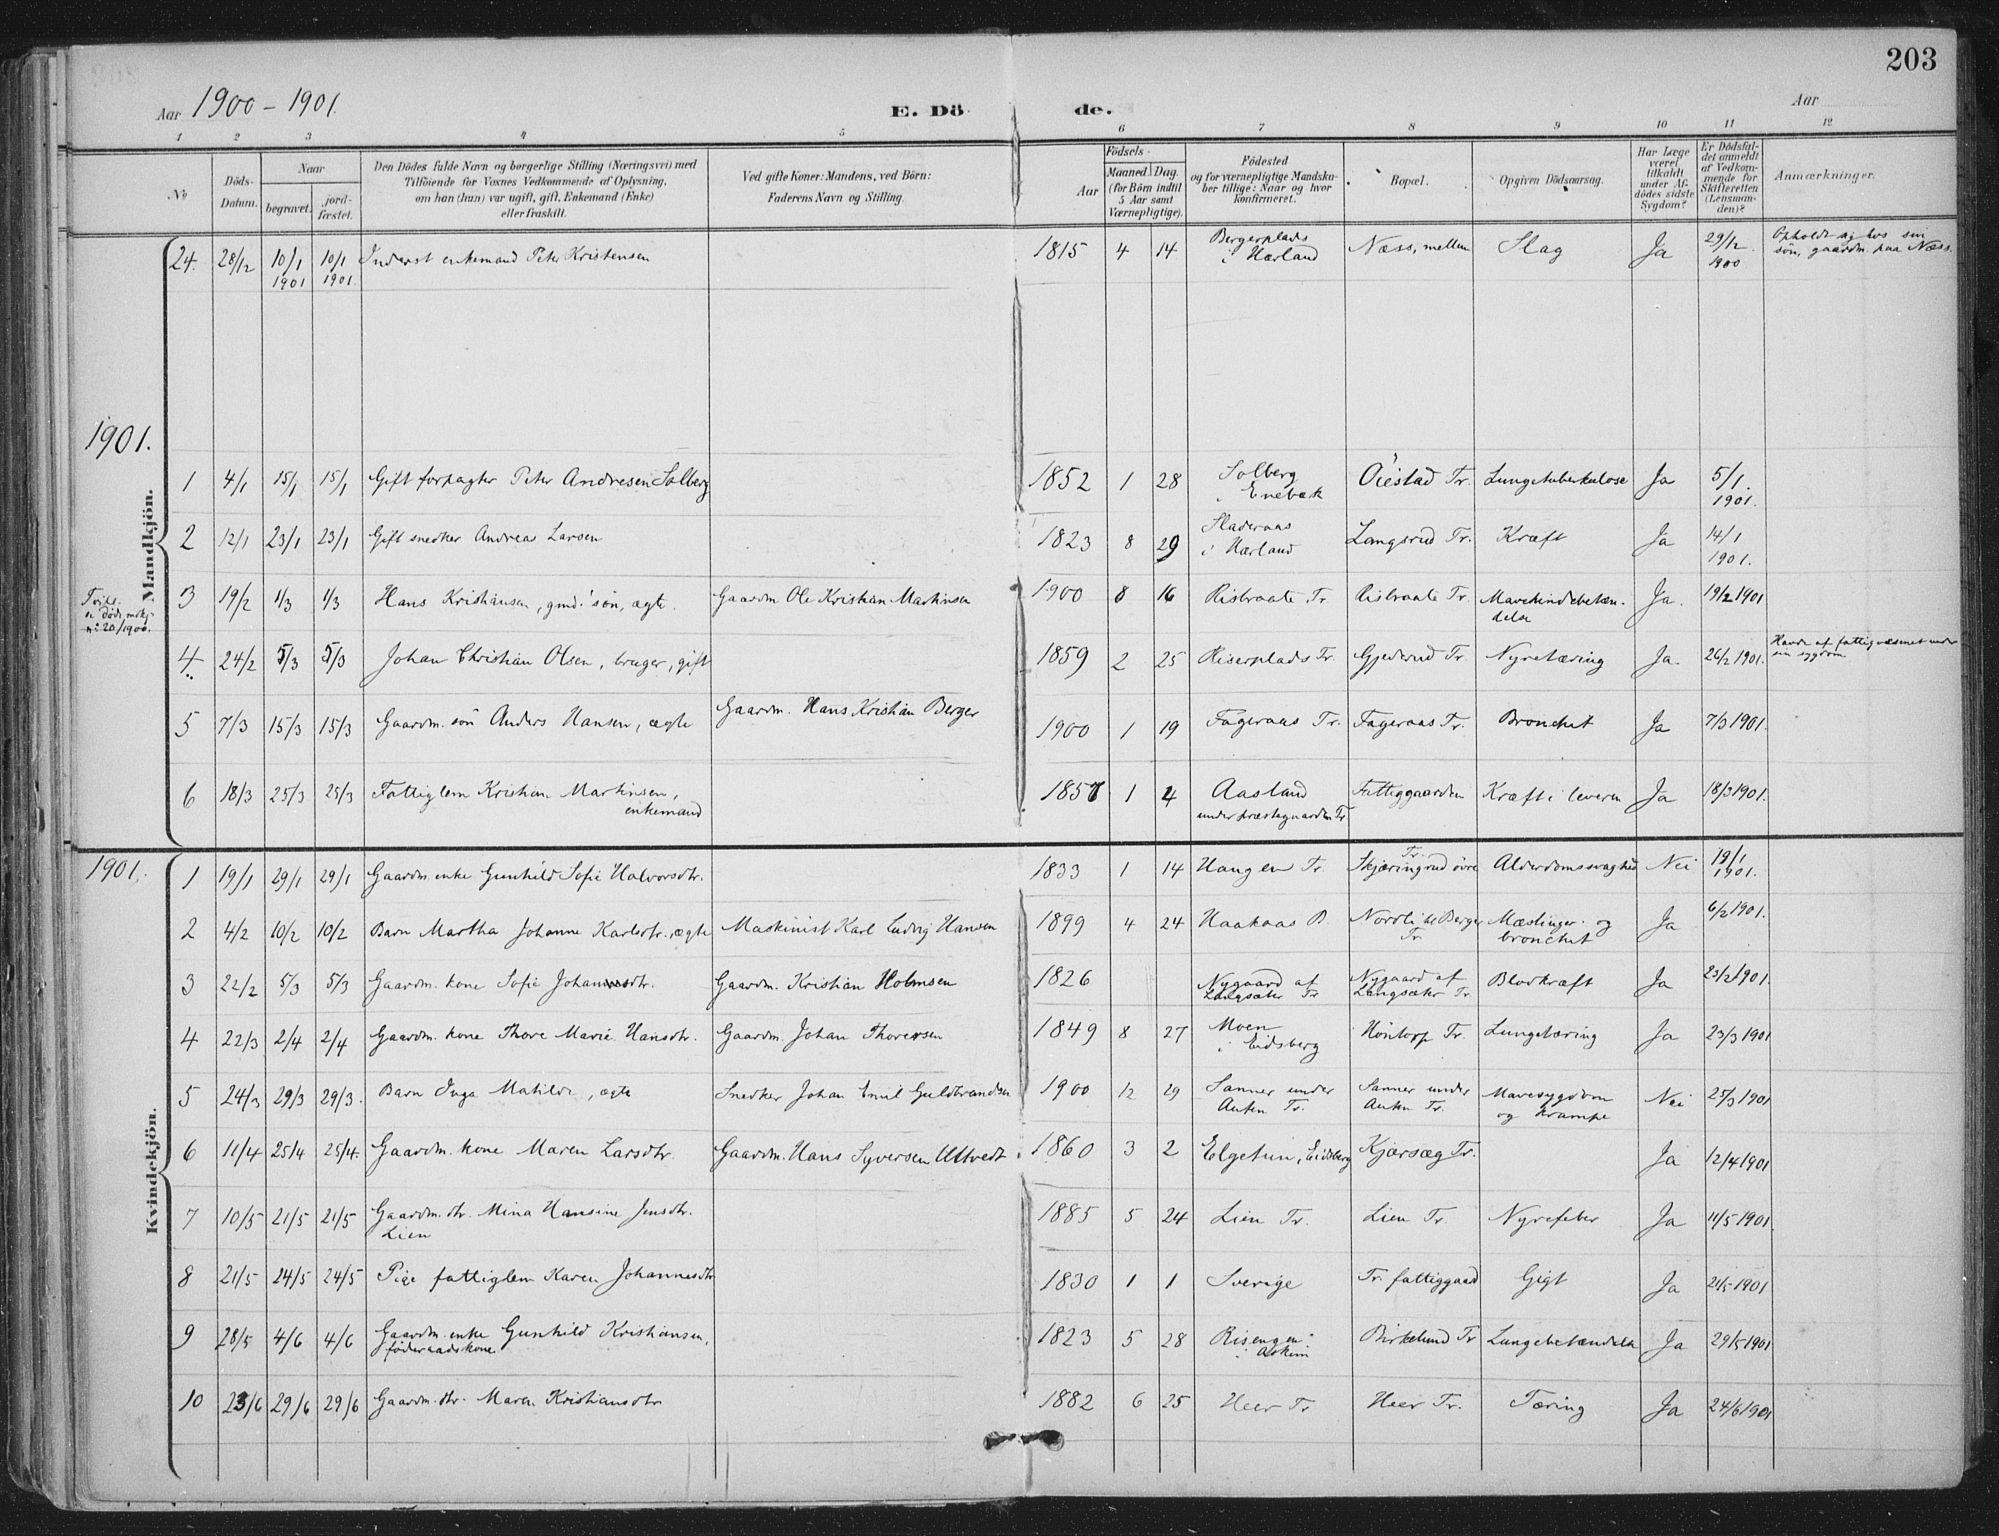 203
Aar 1900 - 1901.
E. Dö de.
Aar
1 2 3 4 5 6 7 8 9 10 11 12
No
Döds-Datum.
Naar
begravet.
jord-fæstet.
Den Dödes fulde Navn og borgerlige Stilling (Næringsvei) med
Tilföiende for Voxnes Vedkommende af Oplysning,
om han (hun) var ugift, gift, Enkemand (Enke)
eller fraskilt.
Ved gifte Koner: Mandens, ved Börn:
Faderens Navn og Stilling.
Födsels-
Aar
Maaned. Dag.
(for Börn indtil
5 Aar samt
Værnepligtige).
Födested
og for værnepligtige Mandska-
ber tillige: Naar og hvor
konfirmeret.
Bopæl.
Opgiven Dödsaarsag.
Har Læge
været
tilkaldt
under Af-
dödes sidste
Sygdom?
Er Dödsfal-
det anmeldt
af Vedkom-
mende for
Skifteretten
(Lensman-
den)?
Anmærkninger.
24. 28/12 10/1 1901 10/1 1901. Inderst enkemand Peter Kristensen 1815 4 14 Bergerplads i Hærland Næss, mellem Slag Ja 29/12 1900 Opholdt sig hos sin søn, gaardm. paa Næss.
1901.
Mandkjön.
1 4/1 15/1 15/1 Gift forpagter Peter Andresen Solberg 1852 1 28 Solberg i Enebak Öiestad Tr. Lungetuberkulose Ja 5/1 1901.
2 12/1 23/1 23/1 Gift snedker Andreas Larsen 1823 8 29 Sladeraas i Hærland Langsrud Tr. Kræft Ja 14/1 1901.
3 19/2 1/3 1/3 Hans Kristiansen, gmd. søn, ægte. Gaardm Ole Kristian Martinsen 1900 8 16 Risbraate Tr Risbraate Tr. Mavehindebetæn-delse Ja. 19/2 1901
4 24/2 5/3 5/3 Johan Christian Olsen, bruger, gift 1859 2 25 Riserplads Tr. Gjederud Tr. Nyretæring Ja. 26/2 1901. Havde af fattigvæsenet under sin sygdom
5 7/3 15/3 15/3 Gaardm. søn Anders Hansen, ægte Gaardm. Hans Kristian Berger 1900 1 19 Fageraas Tr. Fageraas Tr. Bronchit Ja 7/3 1901.
6 18/3 25/3 25/3 Fattiglem Kristian Martinsen, enkemand 1857 1 4 Aasland under præstegaarden Tr Fattiggaarden Kræft i leveren Ja 18/3 1901.
1901.
Kvindekjön.
1 19/1 29/1 29/1 Gaardm. enke Gunhild Sofie Halvorsdtr. 1833 1 14 Haugen Tr. Skjæringrud övre Tr. Alderdomssvaghed Nei 19/1 1901.
2 4/2 10/2 10/2 Barn Martha Johanne Karlsdtr. ægte Maskinist Karl Ludvig Hansen 1899 4 24 Haakaas B. Nordli til Berger Tr. Mæslinger og bronchit Ja 6/2 1901.
3 22/2 5/3 5/3 Gaardm. kone Sofie Johannesdtr. Gaardm. Kristian Holmsen 1826 Nygaard af Langsæter Tr Nygaard af Langsæter Tr. Blodkræft Ja 23/2 1901.
4 22/3 2/4 2/4 Gaardm. kone Thore Marie Hansdtr. Gaardm. Johan Thoresen 1849 8 27 Moen i Eidsberg Höntorp Tr. Lungetæring Ja 23/3 1901
5 24/3 29/3 29/3. Barn Inga Matilde, ægte Snedker Johan Emil Guldbrandsen 1900 12 29 Sanner under Tr. Sanner under Tr. Mavesygdom og krampe Nei 25/3 1901
6 11/4 25/4 25/4. Gaardm. kone Maren Larsdtr. Gaardm. Hans Syversen Ultvedt 1860 3 2 Elgetun, Eidsberg Kjærsæg Tr. Ja 12/4 1901
7 10/5 21/5 21/5 Gaardm. dtr. Mina Hansine Jensdtr. Lien 1885 5 24 Lien Tr. Lien Tr. Nyrefeber Ja 11/5 1901.
8 21/5 24/5 24/5 Pige fattiglem Karen Johannesdtr 1830 1 1 Sverige Tr. fattiggaard Gigt Ja 21/5 1901
9 28/5 4/6 4/6 Gaardm. enke Gunhild Kristiansen, föderaadskone 1823 5 28 Risengen i Askim Birkelund Tr Lungebetændelse Ja 29/5 1901
10 23/6 29/6 29/6 Gaardm. dtr. Maren Kristiansdtr 1882 6 25 Heer Tr Heer Tr. Tæring Ja 24/6 1901